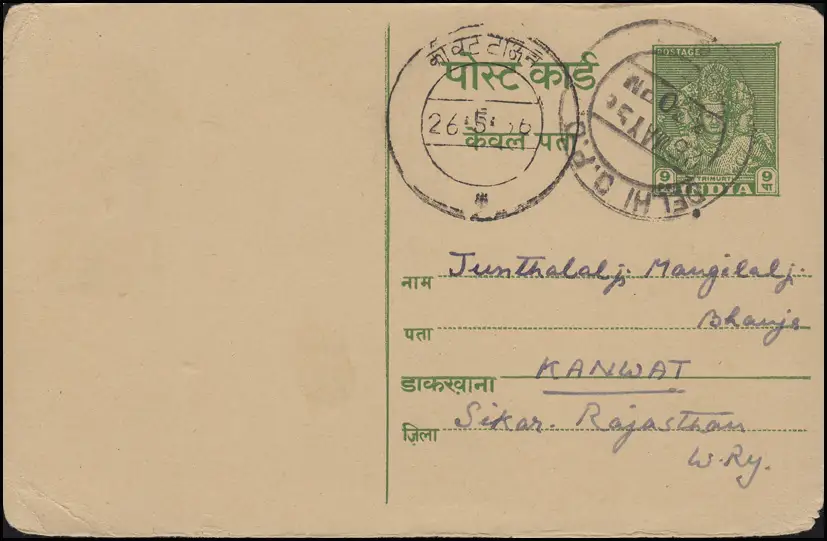 पोस्ट कार्ड
केवल पता
कांवट टाऊन
26.5.56
DELHI G.P.O.
MAY 56
PM
POSTAGE
TRIMURTI
9 INDIA 9
पा
नाम Junthalalji Mangilalji
पता Bhanja
डाकख़ाना KANWAT
ज़िला Sikar. Rajasthan
W.Ry.